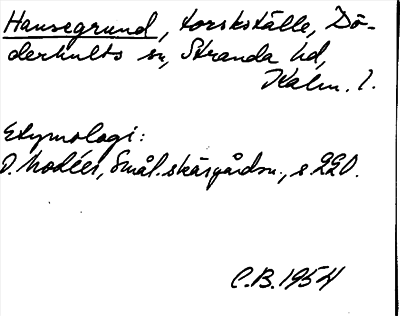 Hansegrund, torskställe, Dö-
derhults sn, Stranda hd,
Kalm. l.
Etymologi:
I. Modéer, Smål. skärgårdsn., s 220.
C.B. 1954